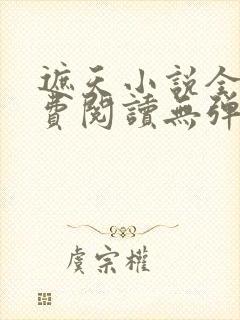 遮天小説全
費閱讀無彈
虞宗權